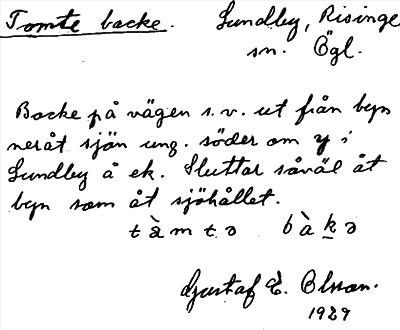 Tomte backe. Lundby, Risinge
sn. Ögl.
Backe på vägen s.v. ut från byn
neråt sjön ung. söder om y i
Lundby å ek. Sluttar såväl åt
byn som åt sjöhållet.
t à m t ə b à k ə
Gustaf E. Olsson.
1929